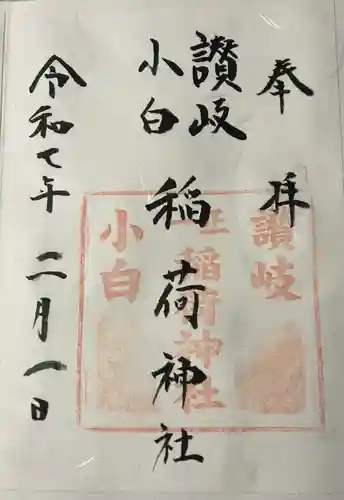 奉拝
讃岐
小白
稲荷神社
令和七年 二月一日
讃岐
稲荷神社
小白